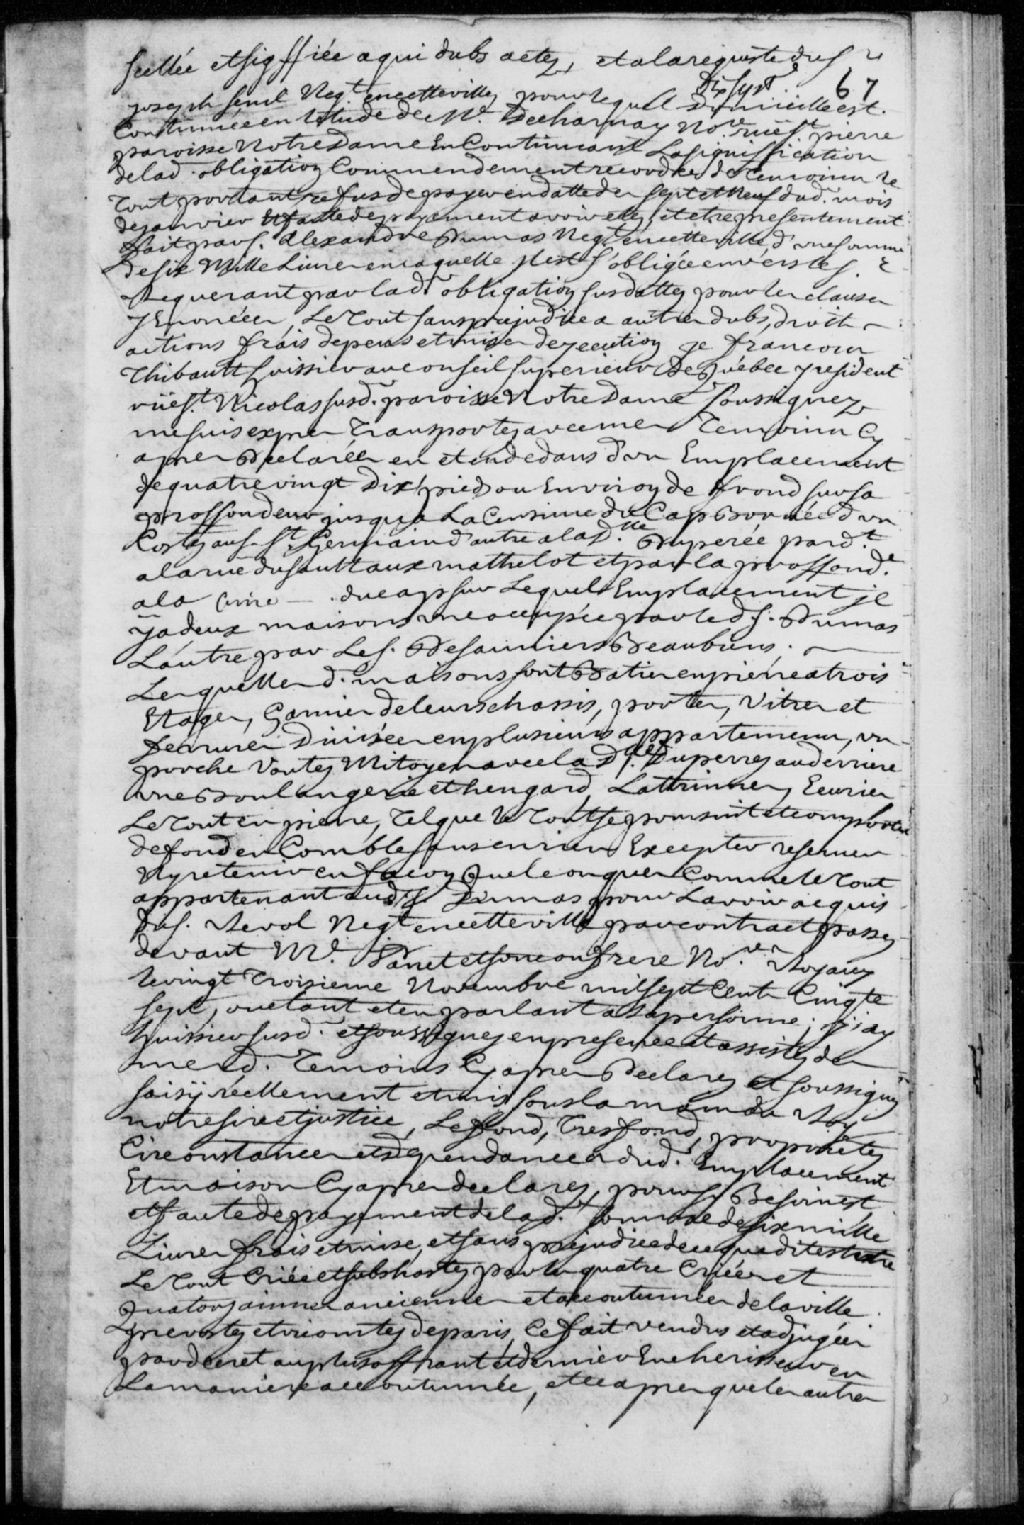 scellée et sigffiée a qui dubs actes, et ala requiste du s.r
67
joseph fenel Neg.t en cette ville, pour lequel Domicille est
Continuée en letude de M.e Decharnay No.re ruë s.t pierre
paroisse Notre Dame En Continuant La signiffication
de lad. obligation Commendement recordée de temoins et
tout portant refus de payer en datte des sept et Neuf dud. mois
de janvier et faute de payement avoir etez et etre presentement
fait par s. alexandre Dumas Neg.t en cette ville d'une somme
de six Mille Livres en laquelle il est s'obligée envers le s.
Requerant par lad.e obligation susdattez pour les clauses
y Enoncées, Le tout sans prejudice a autres dubs, droits
actions frais depens et mises dexecution je francois
Thibault huissier au conseil superieur de Quebec y resident
rüe s.t Nicolas susd. paroisse Notre Dame soussignez
me suis exprez transportez avec mes Temoins Cy
apres Declarés en et audedans d'un Emplacement
de quatre vingt Dix pieds ou Environ de frond sur sa
proffondeur jusqu'a La Censime du Cap Bornée d'un
Costez au s. s.t Germain d'autre a la d.lle Duperée par d.t
a la rue du sault aux mathelot et par la proffond.r
a la Cime du cap sur Lequel Emplacement il
y a deux maisons une occupée par le d. s. Dumas
L'autre par Le s. Desauniers Beaubiens.
Lesquelles d. maisons sont Baties en pierre a trois
Etages, Garnies de leurs chassis, portes, Vitres et
ferrures Divisée en plusieurs appartemens, un
porche Voutez Mitoyen avec la D.lle Duperrez au derriere
une Boulangerie et hengard, Lattrinnes, Ecuries
Le tout en pierre, tel que le tout se poursuit et comporte
de fond en Comble sans en rien Excepter reserver
Ny retenir en facon quelconques Comme le tout
appartenant aud. s. Dumas pour Lavoir acquis
du s. Revol Neg.t en cette ville par contract passez
devant M.e Panet et son confrere No.res Royaux
le vingt troisieme Novembre mil sept Cent Cinqte
sept, ou etant et en parlant a sa personne; j'ay
huissier susd. et soussignez en presence et assistez de
mesd. Temoins Cy apres Declarez et soussignez
saisy réellement et mis sous la main du Roy
notre sire et justice, Le fond, tresfond, proprietez
Circonstances et dependances dud. Emplacement
Et maison Cy apres declarez, pour s'y Besoin est
et faute de payement de lad. somme de six mille
Livres frais et mise, et sans prejudice de ce que dit est etre
Le tout Criée et subhastez par les quatre Criées et
Quatorzainnes ancienne et accoutumées de la ville
prevostez et vicomtez de paris, Ce fait vendus et adjugée
par decret au plus offrant et dernier Encherisseur en
La maniere accoutumée, et ce apres que les autres